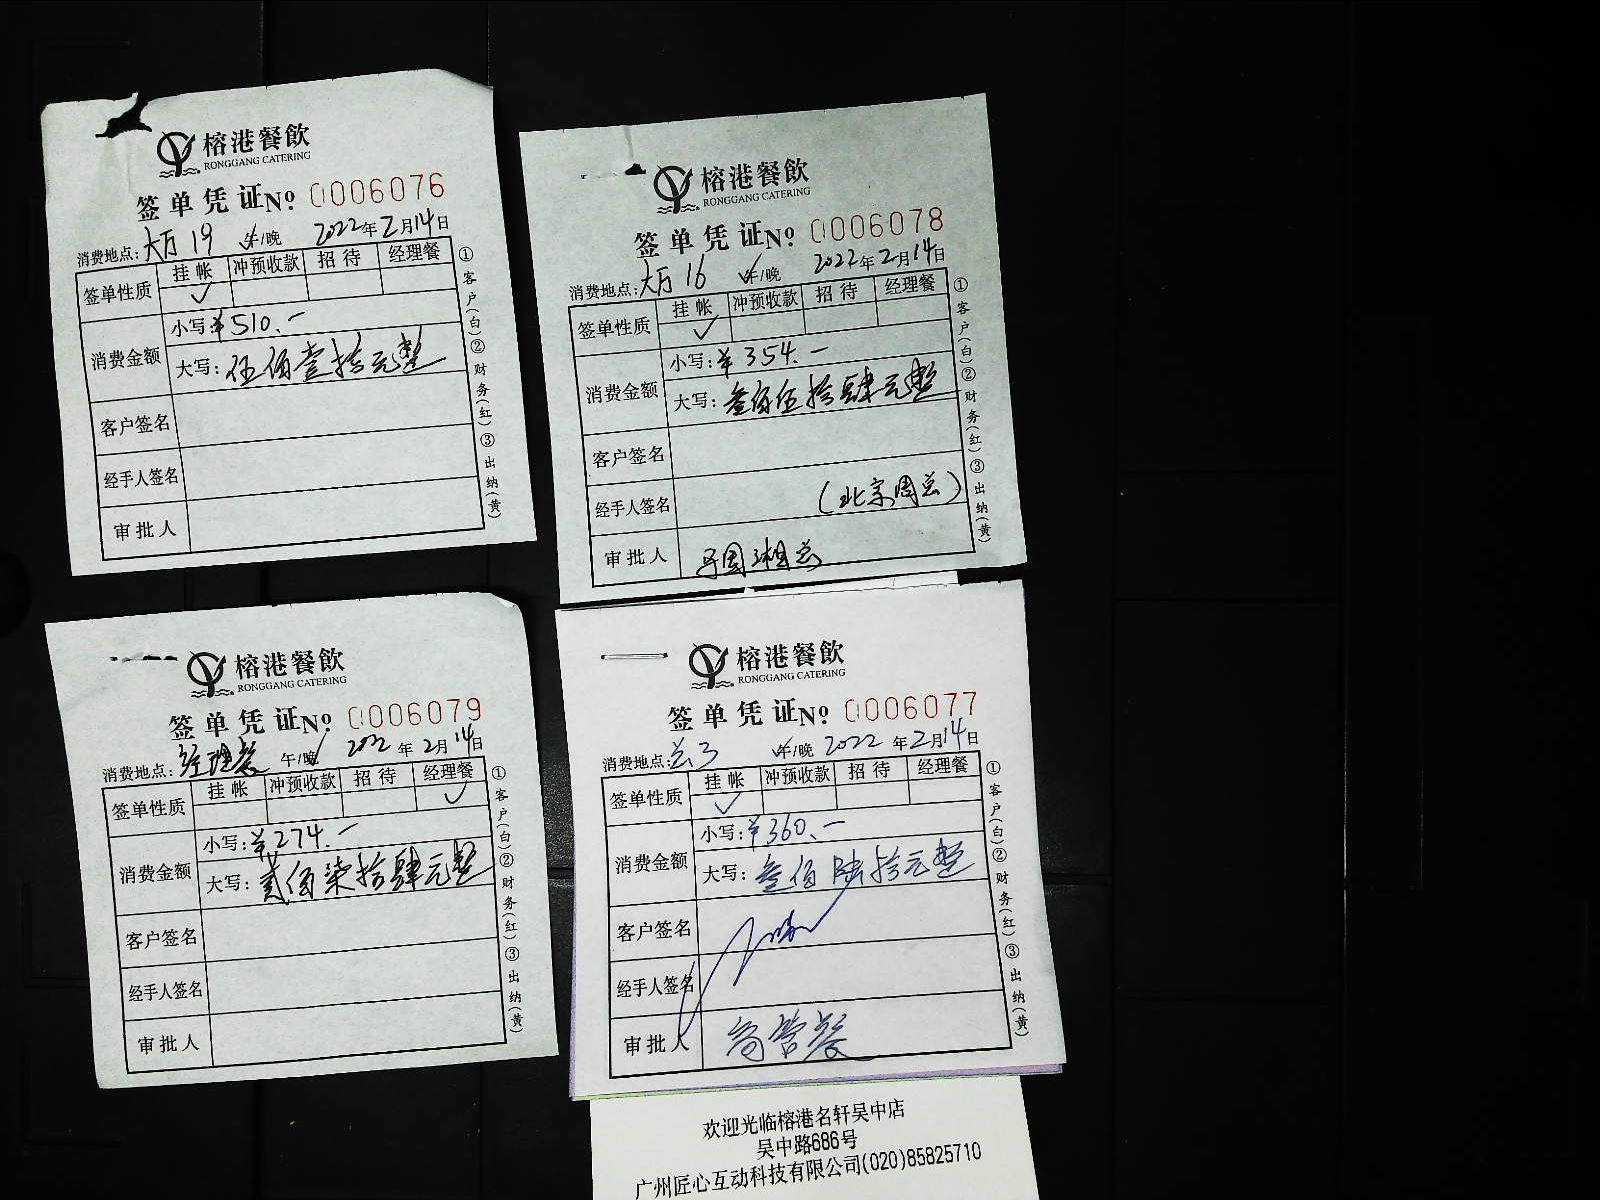 榕港餐飲
RONGGANG CATERING
签单凭证No 0006076
消费地点:大厅19 午/晚 2022年2月14日
签单性质 挂帐 冲预收款 招待 经理餐
✓
消费金额 小写:¥510.-
大写:伍佰壹拾元整
客户签名
经手人签名
审批人
①客户(白)②财务(红)③出纳(黄)
榕港餐飲
RONGGANG CATERING
签单凭证No 0006078
消费地点:大厅16 午/晚 2022年2月14日
签单性质 挂帐 冲预收款 招待 经理餐
✓
消费金额 小写:¥354.-
大写:叁佰伍拾肆元整
客户签名
经手人签名 (北京周总)
审批人
①客户(白)②财务(红)③出纳(黄)
榕港餐飲
RONGGANG CATERING
签单凭证No 0006079
消费地点:经理餐 午/晚 2022年2月14日
签单性质 挂帐 冲预收款 招待 经理餐
✓
消费金额 小写:¥274.-
大写:贰佰柒拾肆元整
客户签名
经手人签名
审批人
①客户(白)②财务(红)③出纳(黄)
榕港餐飲
RONGGANG CATERING
签单凭证No 0006077
消费地点:总3 午/晚 2022年2月14日
签单性质 挂帐 冲预收款 招待 经理餐
✓
消费金额 小写:¥360.-
大写:叁佰陆拾元整
客户签名
经手人签名
审批人 高管餐
①客户(白)②财务(红)③出纳(黄)
欢迎光临榕港名轩吴中店
吴中路686号
广州匠心互动科技有限公司(020)85825710